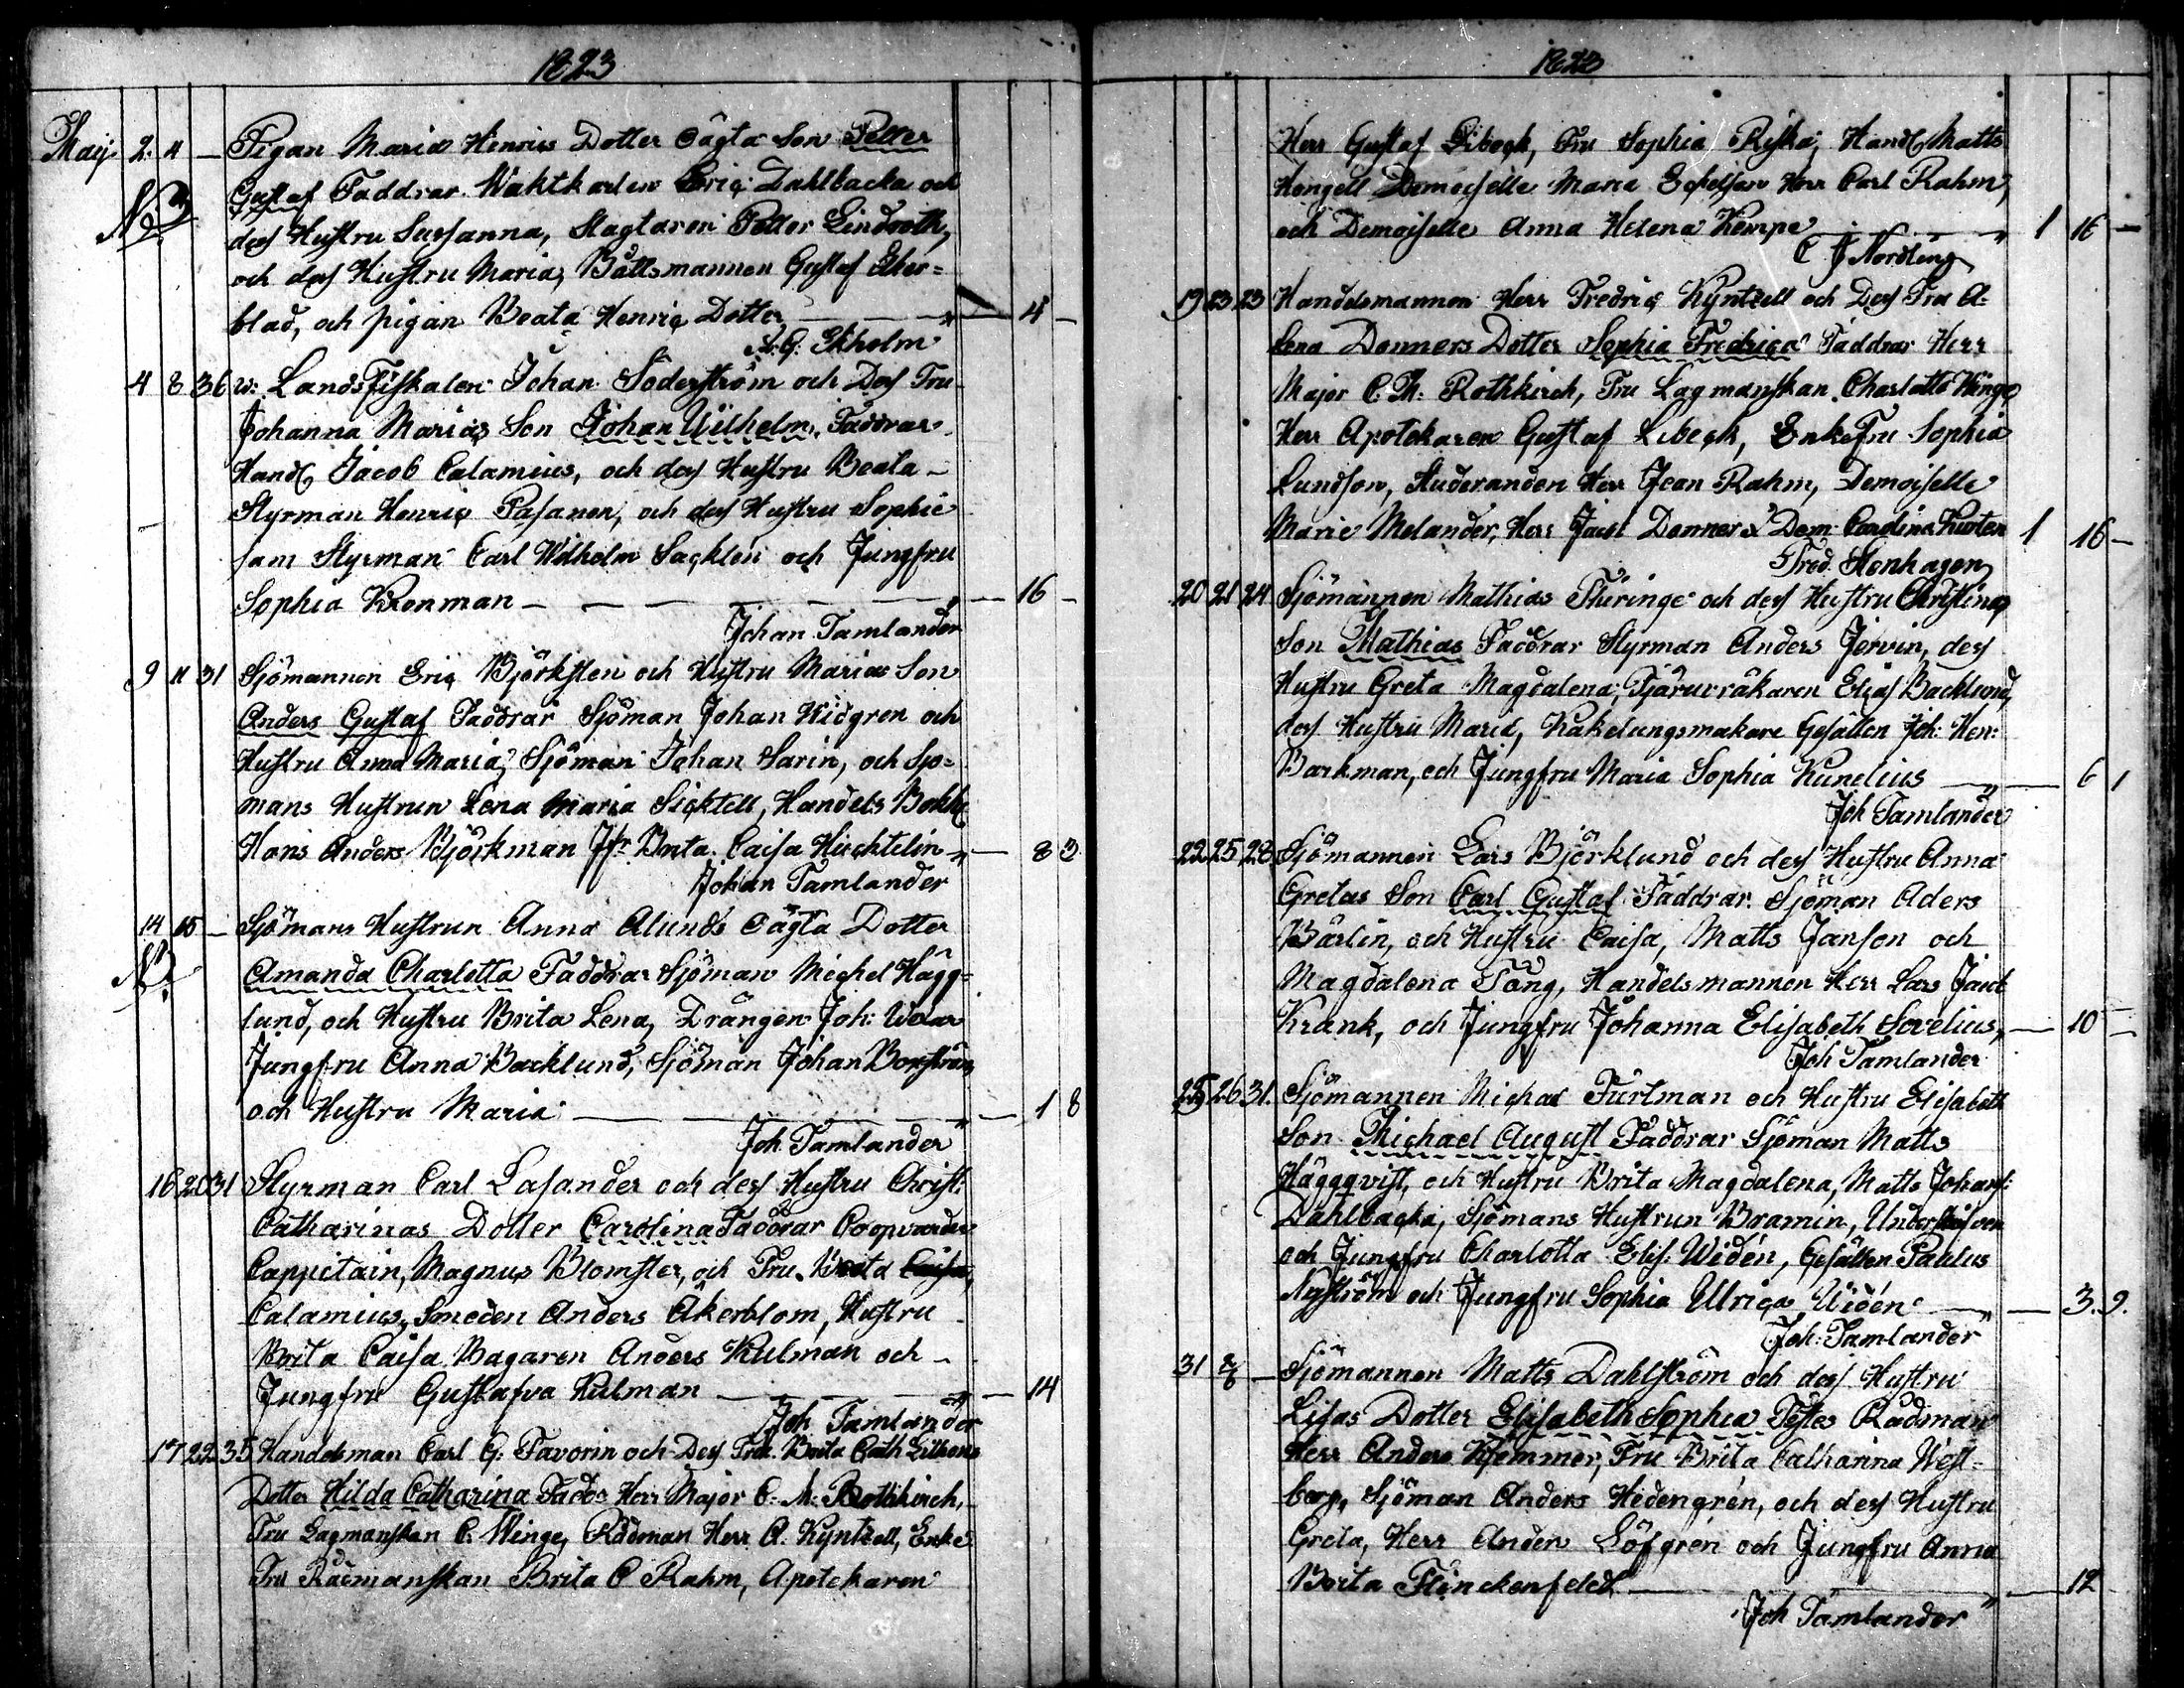 1823
Maij 2. 4 — Pigan Maria Henrics Dotter oägta Son Petter
Gustaf Faddrar Waktkarlen Eric Dahlbacka och
des Hustru Susanna, Slagtaren Petter Lindroth,
och des Hustru Maria, Båttsmannen Gustaf Eker=
blad, och pigan Beata Henric Dotter — " — 4 —
A. G. Ekholm
4 8 36 v: Landsfiskalen Johan Söderström och Des Fru
Johanna Marias Son Johan Wilhelm, Faddrar
Handl Jacob Calamius, och des Hustru Beata —
Styrman Henric Pasanen, och des Hustru Sophie
sam Styrman Carl Wilhelm Sacklen och Jungfru
Sophia Kronman — — — — " — 16 —
Johan Tamlander
9 11 31 Sjömannen Eric Björksten och Hustru Marias Son
Anders Gustaf Faddrar Sjöman Johan Widgren och
Hustru Anna Maria, Sjöman Johan Sarin, och Sjö=
mans Hustrun Lena Maria Sicktell, Handels Bokh
Hans Anders Björkman Jfr Brita Caisa Hischtelin " — 8 3
Johan Tamlander
14 15 — Sjömans Hustrun Anna Alunds oägta Dotter
Amanda Charlotta Faddrar Sjöman Michel Hägg=
lund, och Hustru Brita Lena, Drängen Joh:
Jungfru Anna Backlund, Sjöman Johan Boxström
och Hustru Maria — " — 1 8
Joh. Tamlander
16 20 31 Styrman Carl Lasander och des Hustru Christ:
Catharinas Dotter Carolina Faddrar Coopvardie
Cappitain, Magnus Blomster, och Fru Brita
Calamius, Smeden Anders Åkerblom, Hustru
Brita Caisa Bagaren Anders Kulman och —
Jungfru Gustafva Kulman — " — 14
Joh Tamlander
17 22 35 Handelsman Carl G: Favorin och Des Fru Brita Cath
Dotter Hilda Catharina Fadd: Herr Major C. M. Rothkirch,
Fru Lagmanskan C. Winge, Rådman Herr A. Kyntzell, Enke
Fru Rådmanskan Brita C Rahm, Apotekaren
1823
Herr Gustaf Libeck, Fru Sophia Riska, Handl Matts
Kongell Demoiselle Maria Herr Carl Rahm,
och Demoiselle Anna Helena Kempe " 1 16 —
C J Nordling
19 23 23 Handelsmannen Herr Fredric Kyntzell och Des Fru A:
Lena Donners Dotter Sophia Fredrica Faddrar Herr
Major C. M: Rothkirch, Fru Lagmanskan Charlotta Winge,
Herr Apotekaren Gustaf Libeck, EnkeFru Sophia
Lundson, Studeranden Herr Jean Rahm, Demoiselle
Marie Melander, Herr Jacob Donner & Dem: Carolina Kurten 1 16 —
Fred. Stenhagen
20 21 24 Sjömannen Mathias Thuringe och des Hustru Christinas
Son Mathias Faddrar Styrman Anders Jervin, des
Hustru Greta Magdalena, Tjäruvräkaren Elias Backlund,
des Hustru Maria, Kakelungsmakare Gesällen Joh: Hen:
Barkman, och Jungfru Maria Sophia Kunelius — " — 6 1
Joh Tamlander
22 25 28 Sjömannen Lars Björklund och des Hustru Anna
Gretas Son Carl Gustaf Faddrar Sjöman Aders
Bärlin, och Hustru Caisa, Matts Janson och
Magdalena Tång, Handelsmannen Herr Lars Jacob
Krank, och Jungfru Johanna Elisabeth Sovelius, — 10 —
Joh Tamlander
25 26 31. Sjömannen Michael Furtman och Hustru Elisabeth
Son Michael August Faddrar Sjöman Matts
Häggqvist, och Hustru Brita Magdalena, Matts Johans:
Dahlbacka, Sjömans Hustrun Bramin,
och Jungfru Charlotta Elis: Widén, Gesällen Paulus
Nyström och Jungfru Sophia Ulrica Widén — " — 3. 9.
Joh: Tamlander
31 2/6 — Sjömannen Matts Dahlström och des Hustru
Lisas Dotter Elisabeth Sophia Testes Rådman
Herr Anders Kjemmer, Fru Brita Catharina West=
berg, Sjöman Anders Hedengrén, och des Hustru
Greta, Herr Anders Löfgren och Jungfru Anna
Brita Flinckenfeldt — — 12
Joh Tamlander